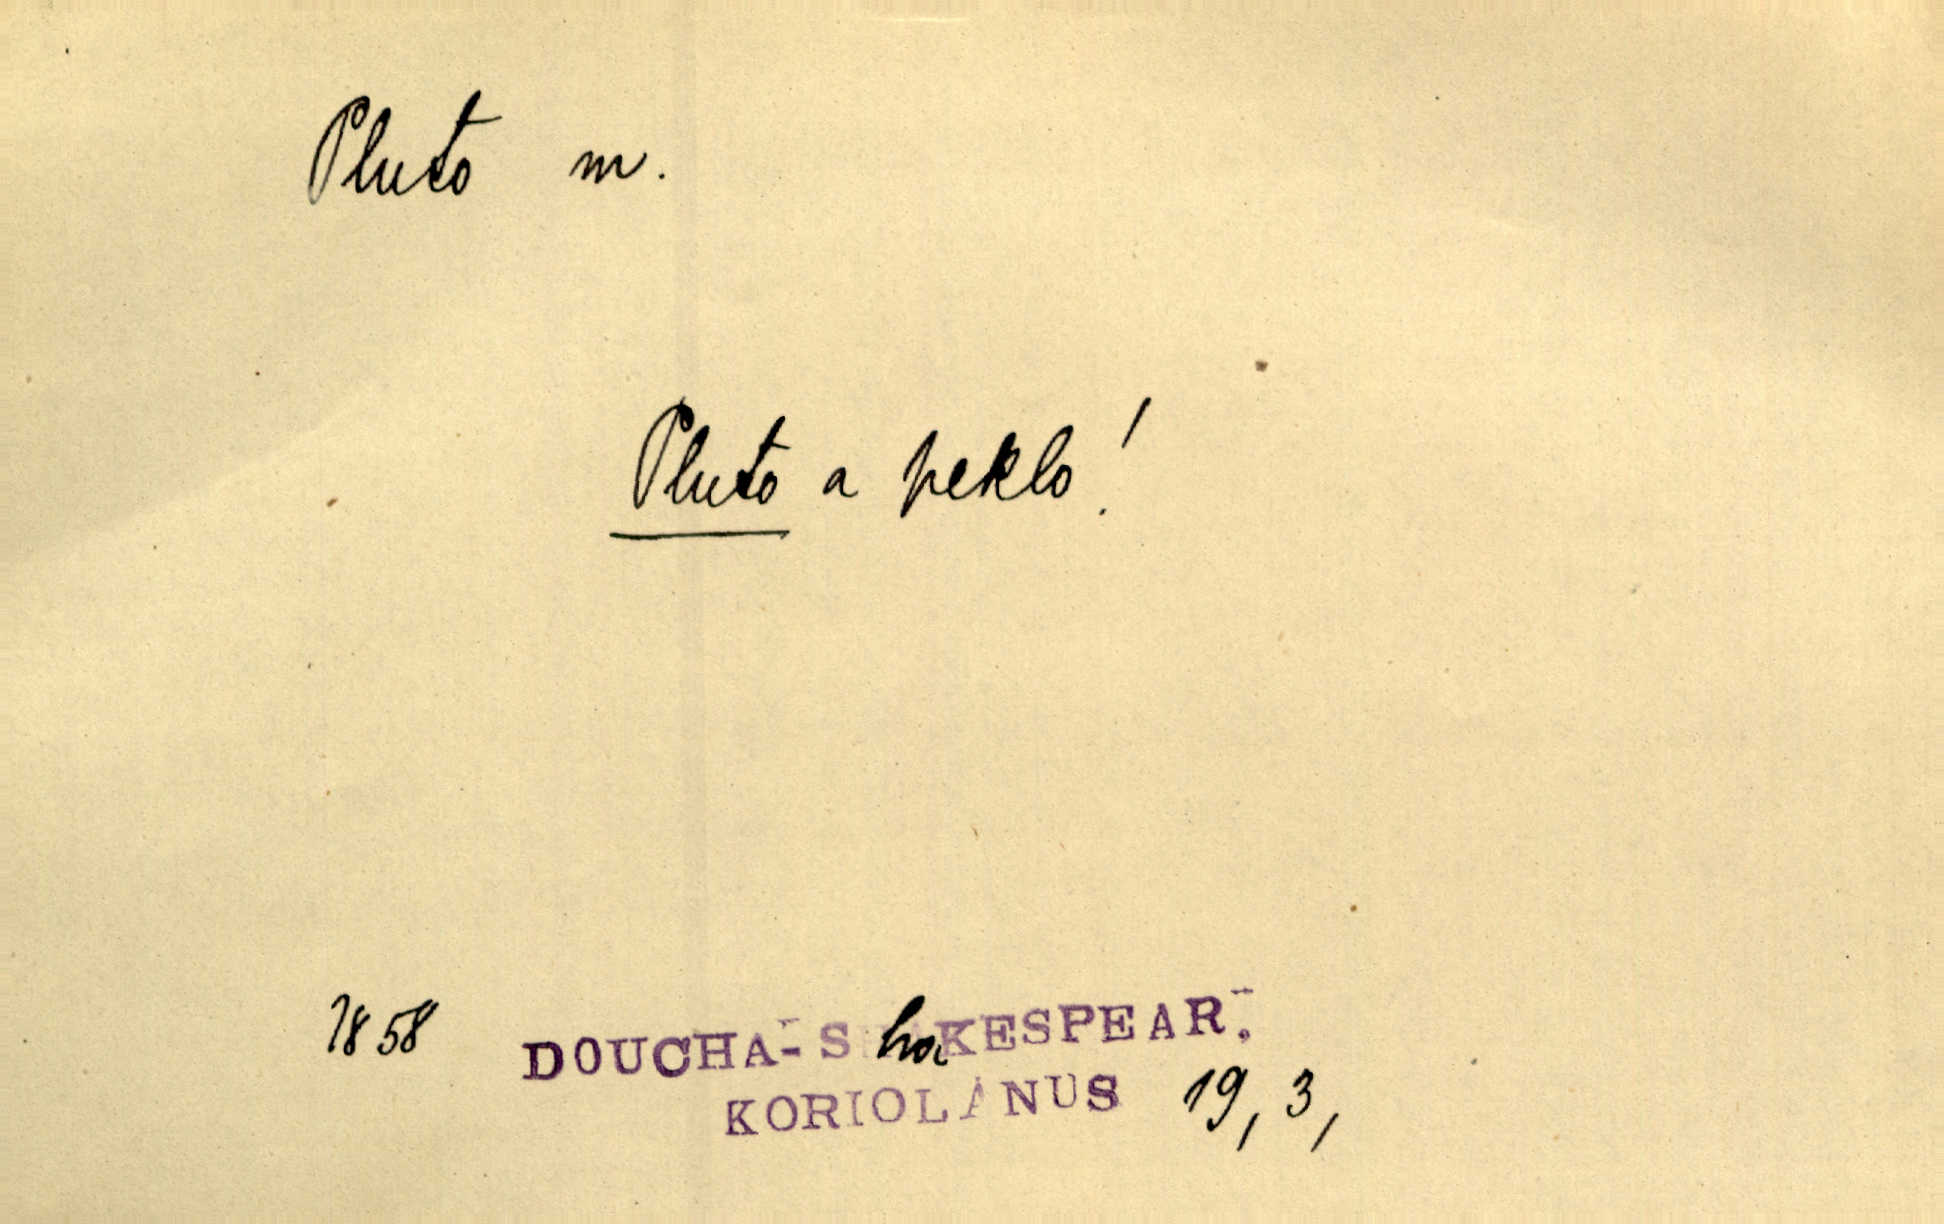 Pluto m.
Pluto a peklo!
1858 DOUCHA-ShaKESPEAR.
KORIOLANUS 19, 3,